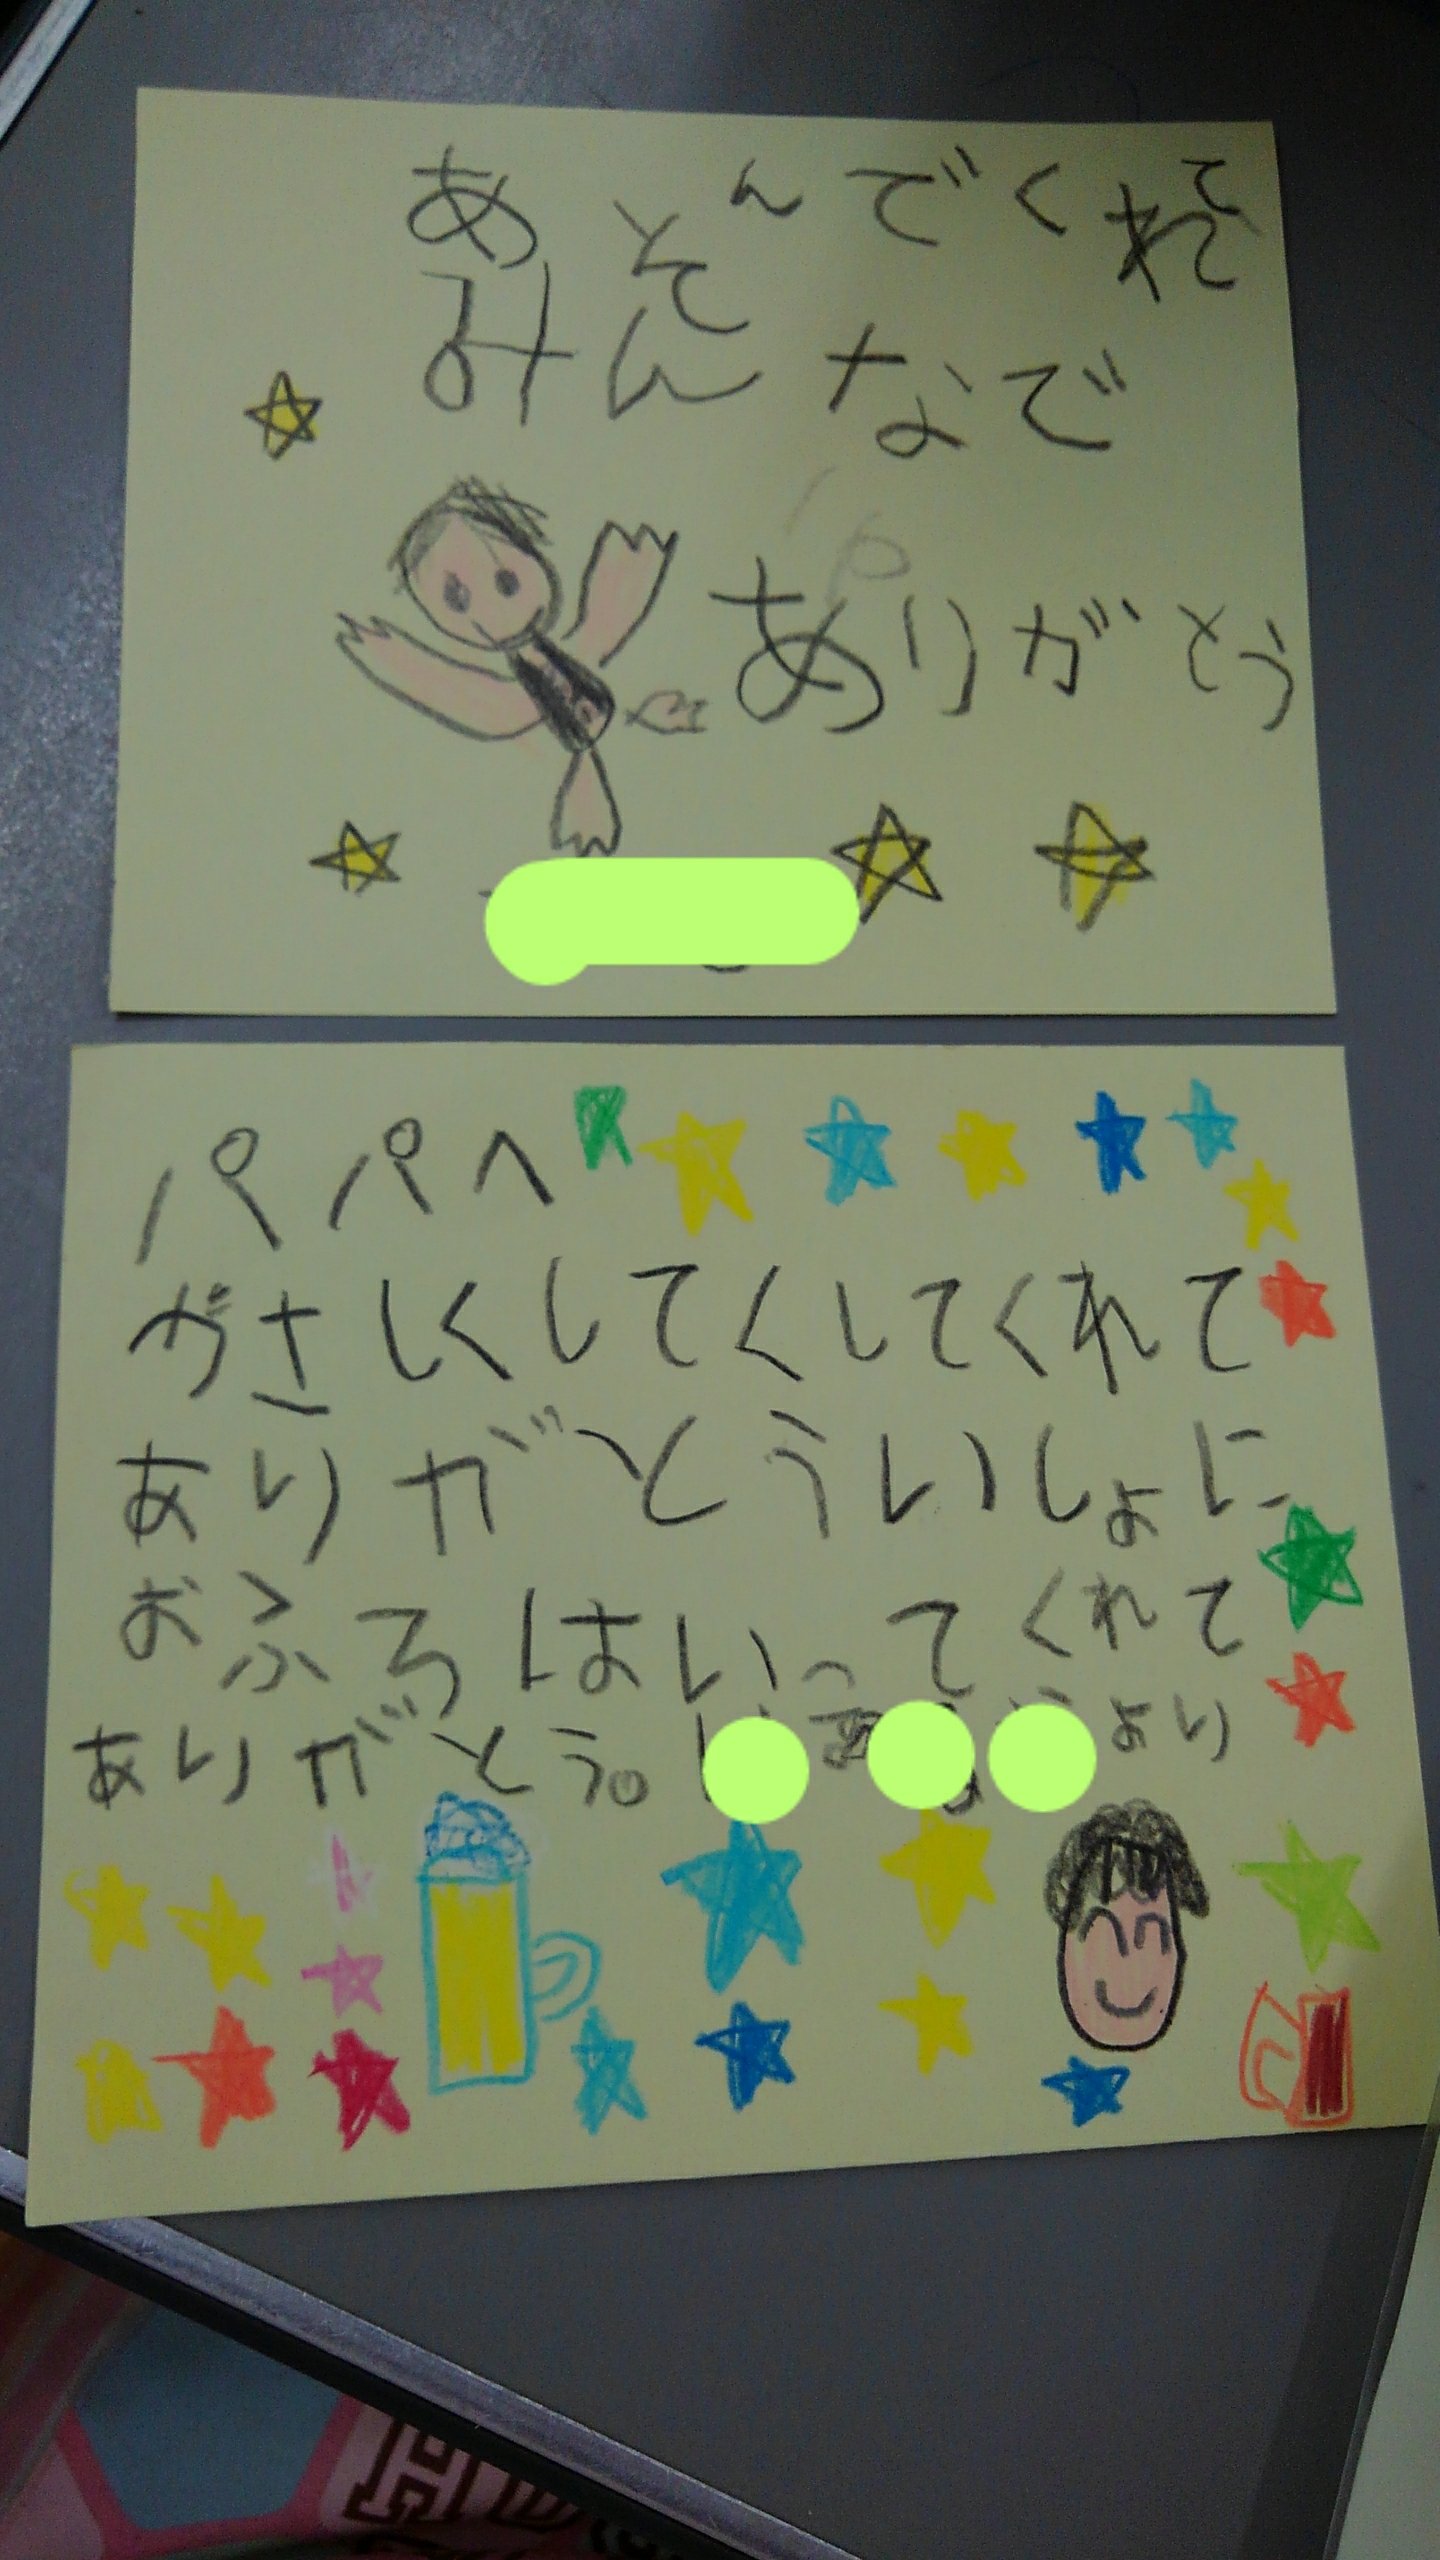 あそんでくれて
みんなで
ありがとう
パパへ
がさしくしてくしてくれて
ありがとういしょに
おふろはいってくれて
ありがとう。 より